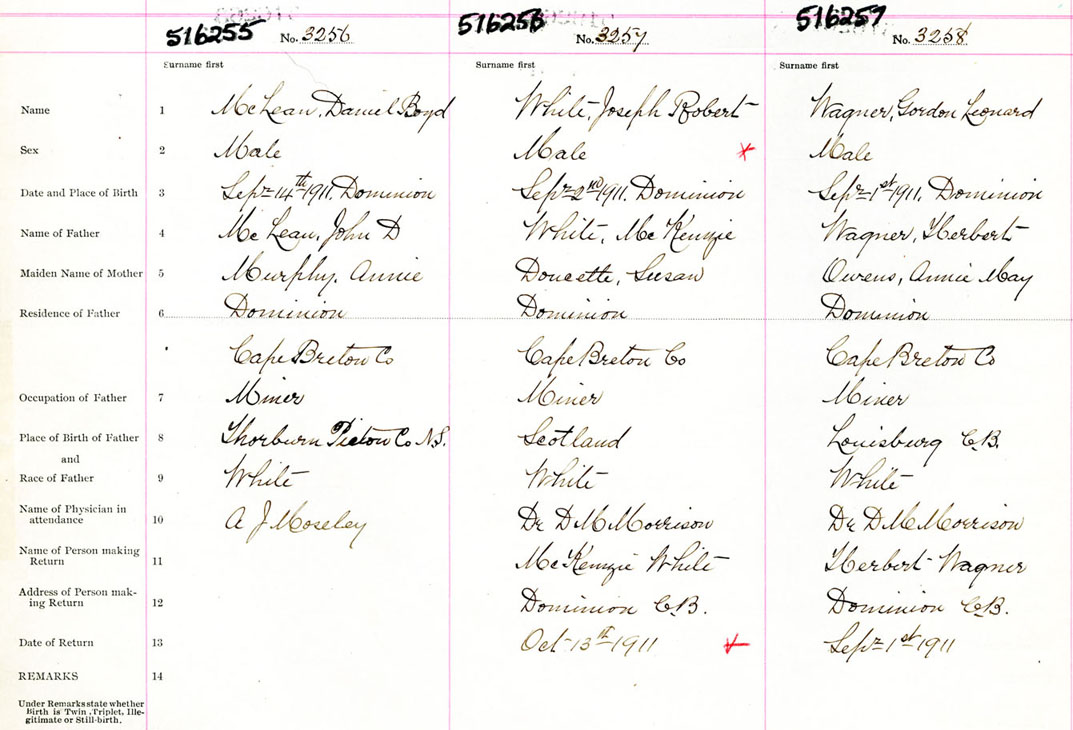 516255 No. 3256 516256 No. 3257 516257 No. 3258
Surname first Surname first Surname first
Name 1 McLean, Daniel Boyd White, Joseph Robert Wagner, Gordon Leonard
Sex 2 Male Male Male
Date and Place of Birth 3 Sept 14th 1911. Dominion Sept 2nd 1911. Dominion Sept 1st 1911. Dominion
Name of Father 4 McLean, John D White, McKenzie Wagner, Herbert
Maiden Name of Mother 5 Murphy, Annie Doucette, Susan Owens, Annie May
Residence of Father 6 Dominion Dominion Dominion
Cape Breton Co Cape Breton Co Cape Breton Co
Occupation of Father 7 Miner Miner Miner
Place of Birth of Father 8 Thorburn Pictou Co N.S. Scotland Louisburg C.B.
and
Race of Father 9 White White White
Name of Physician in
attendance 10 A J Moseley Dr D M Morrison Dr D M Morrison
Name of Person making
Return 11 McKenzie White Herbert Wagner
Address of Person mak-
ing Return 12 Dominion C.B. Dominion C.B.
Date of Return 13 Oct 13th 1911 Sept 1st 1911
REMARKS 14
Under Remarks state whether
Birth is Twin, Triplet, Ille-
gitimate or Still-birth.